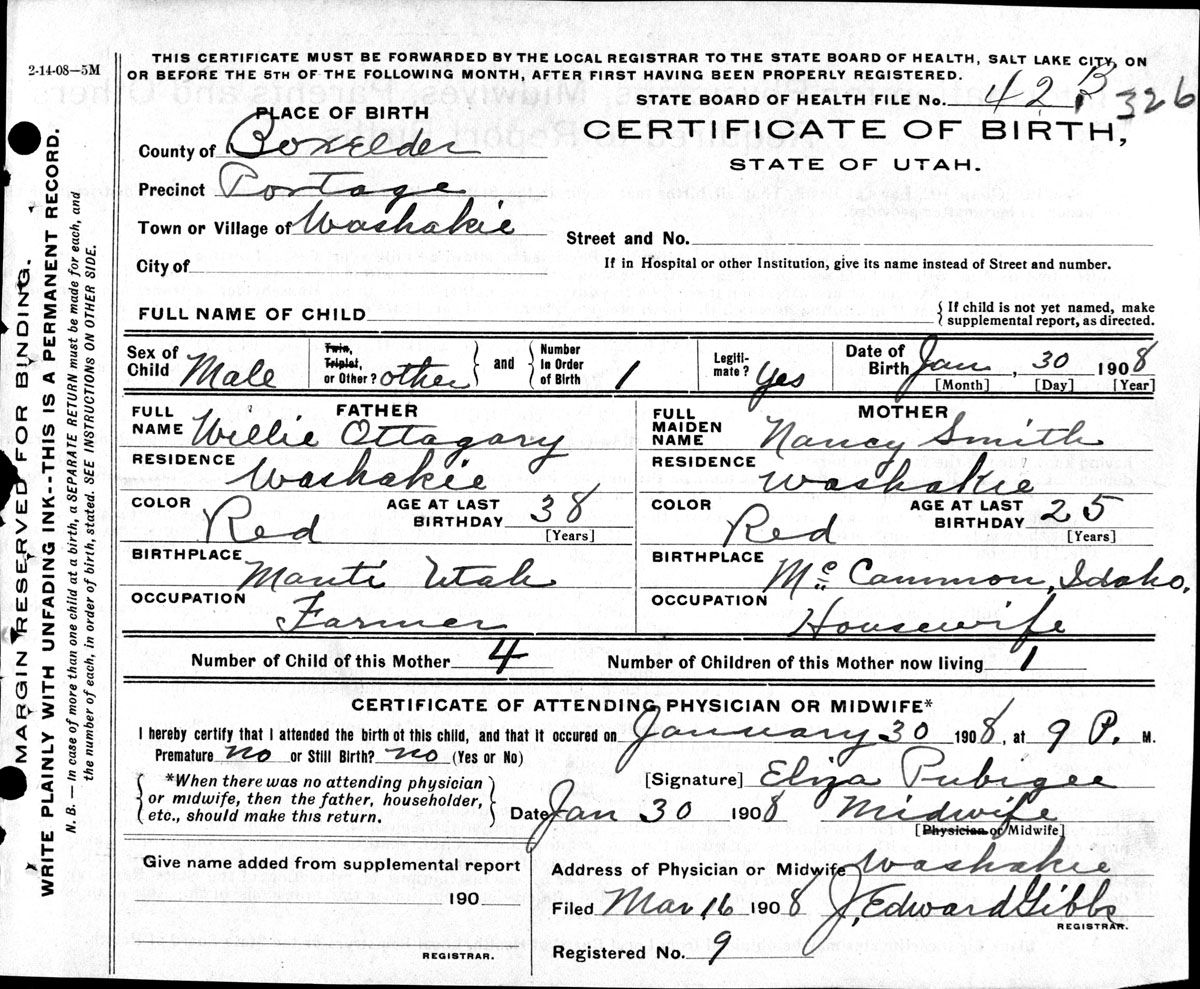 2-14-08—5M
THIS CERTIFICATE MUST BE FORWARDED BY THE LOCAL REGISTRAR TO THE STATE BOARD OF HEALTH, SALT LAKE CITY, ON
OR BEFORE THE 5TH OF THE FOLLOWING MONTH, AFTER FIRST HAVING BEEN PROPERLY REGISTERED.
STATE BOARD OF HEALTH FILE No. 42 B 326
PLACE OF BIRTH
CERTIFICATE OF BIRTH,
STATE OF UTAH.
County of Boxelder
Precinct Portage
Town or Village of Washakie
Street and No.
City of
If in Hospital or other Institution, give its name instead of Street and number.
FULL NAME OF CHILD
{ If child is not yet named, make
supplemental report, as directed.
Sex of Child Male
Twin, Triplet, or Other? other } and { Number In Order of Birth 1
Legitimate? Yes
Date of Birth Jan, 30 1908
[Month] [Day] [Year]
FATHER
FULL NAME Willie Ottogary
RESIDENCE Washakie
COLOR Red
AGE AT LAST BIRTHDAY 38
[Years]
BIRTHPLACE Manti Utah
OCCUPATION Farmer
MOTHER
FULL MAIDEN NAME Nancy Smith
RESIDENCE Washakie
COLOR Red
AGE AT LAST BIRTHDAY 25
[Years]
BIRTHPLACE Mc Cammon, Idaho.
OCCUPATION Housewife
Number of Child of this Mother 4
Number of Children of this Mother now living 1
CERTIFICATE OF ATTENDING PHYSICIAN OR MIDWIFE*
I hereby certify that I attended the birth of this child, and that it occured on January 30 1908, at 9 P. M.
Premature no or Still Birth? no (Yes or No)
{ *When there was no attending physician
or midwife, then the father, householder,
etc., should make this return. }
[Signature] Eliza Pubigee
Date Jan 30 1908 Midwife
[Physician or Midwife]
Give name added from supplemental report
190
REGISTRAR.
Address of Physician or Midwife Washakie
Filed Mar 16 1908 J. Edward Gibbs
REGISTRAR.
Registered No. 9
MARGIN RESERVED FOR BINDING.
WRITE PLAINLY WITH UNFADING INK--THIS IS A PERMANENT RECORD.
N. B. — In case of more than one child at a birth, a SEPARATE RETURN must be made for each, and
the number of each, in order of birth, stated. SEE INSTRUCTIONS ON OTHER SIDE.